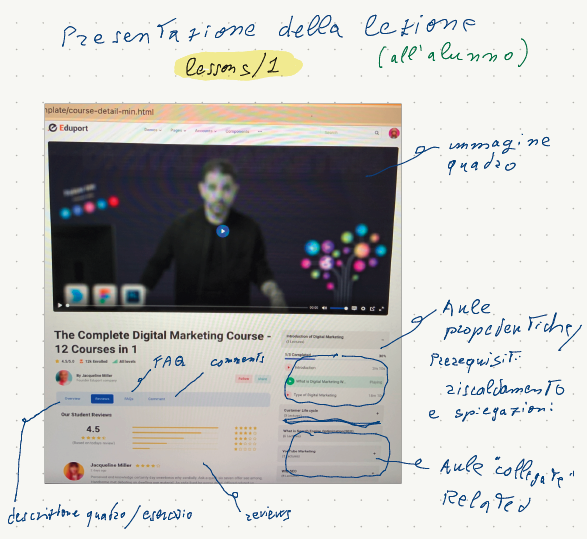 Presentazione della lezione
(all'alunno)
lessons/1
mplate/course-detail-min.html
Eduport
immagine
quadro
The Complete Digital Marketing Course -
12 Courses in 1
4.5/5.0 12k Enrolled All levels
By Jacqueline Miller
FAQ
comments
Overview Reviews FAQs Comment
Our Student Reviews
4.5
Jacqueline Miller
Introduction of Digital Marketing
Introduction
What is Digital Marketing W...
Type of Digital Marketing
Customer Life cycle
YouTube Marketing
Aule
propedeutiche,
Prerequisiti
riscaldamento
e spiegazioni
Aule "collegate"
Related
descrizione quadro/esercizio
reviews